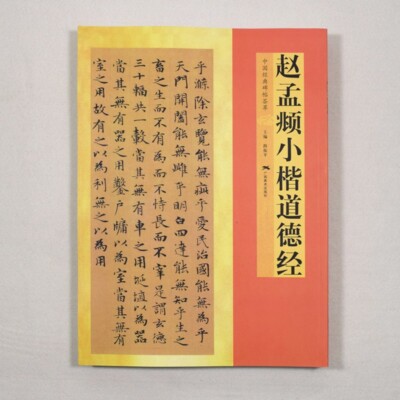 赵孟𫖯小楷道德经
中国经典碑帖荟萃
主编
乎滌除玄覽能無疵乎愛民治國能無為乎
天門開闔能無雌乎明白四達能無知乎生之
畜之生而不有為而不恃長而不宰是謂玄德
三十輻共一轂當其無有車之用埏埴以為器
當其無有器之用鑿戶牖以為室當其無有
室之用故有之以為利無之以為用